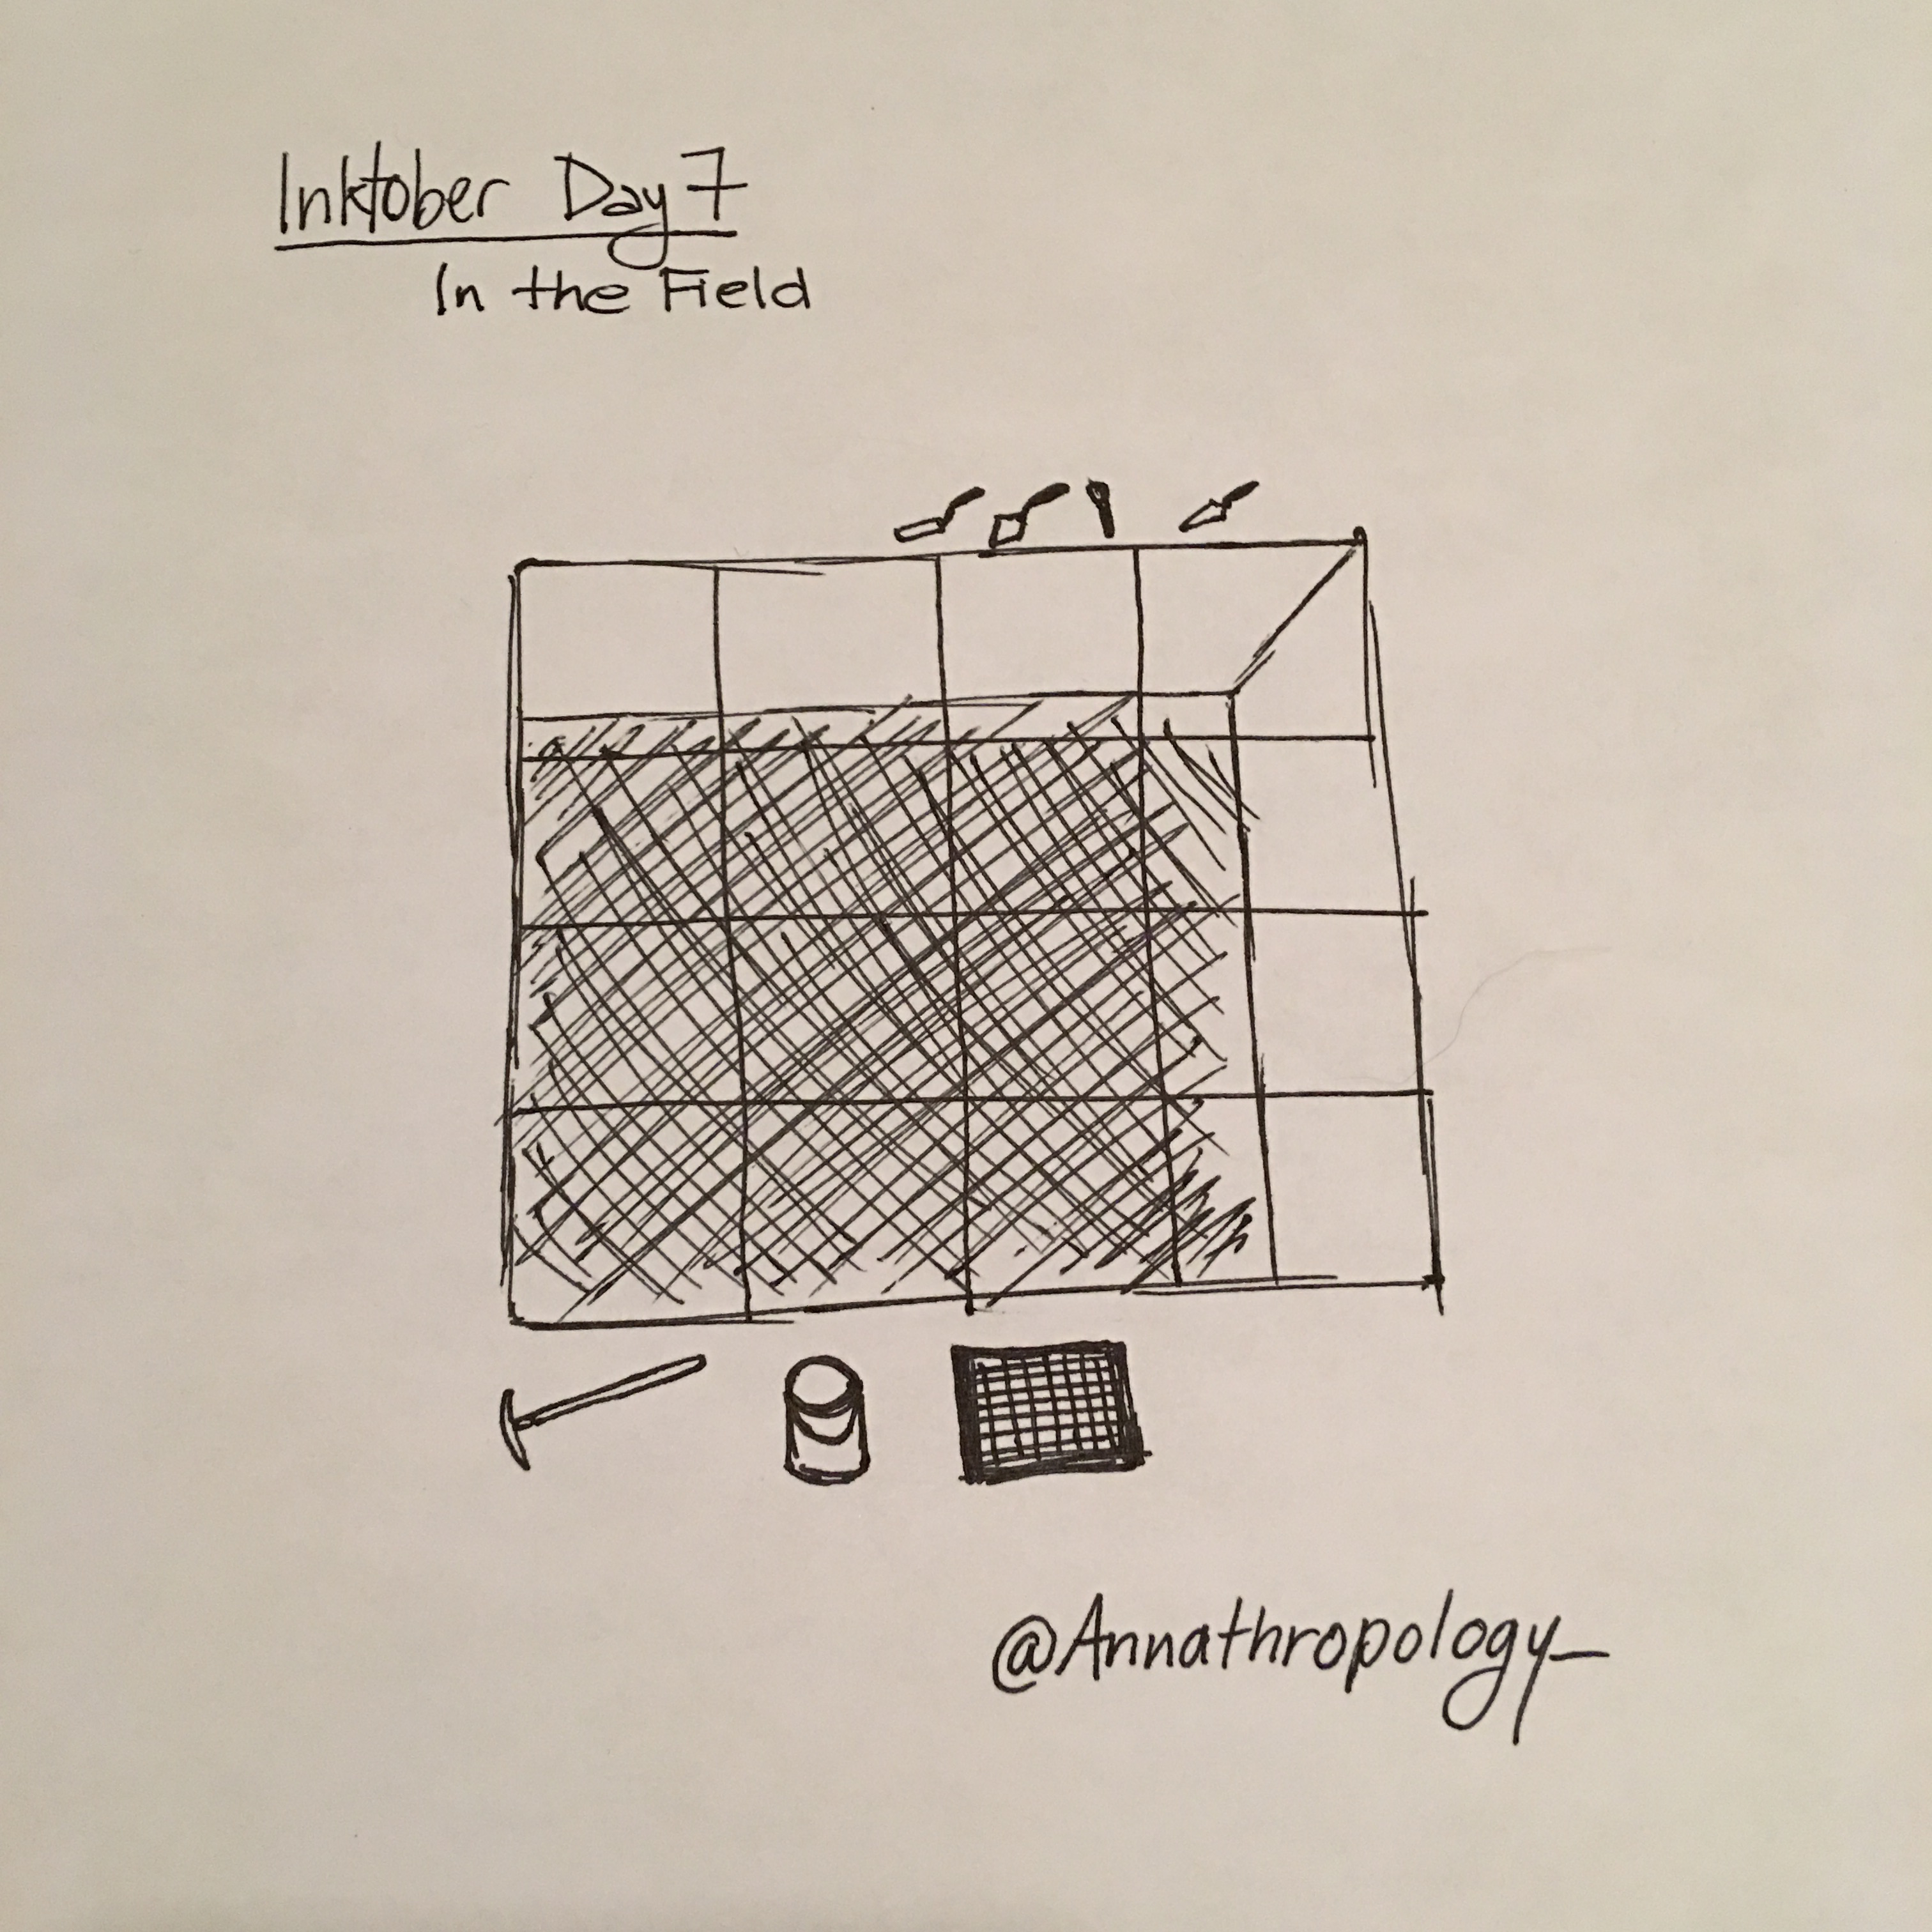 Inktober Day 7
In the Field
@Annathropology_